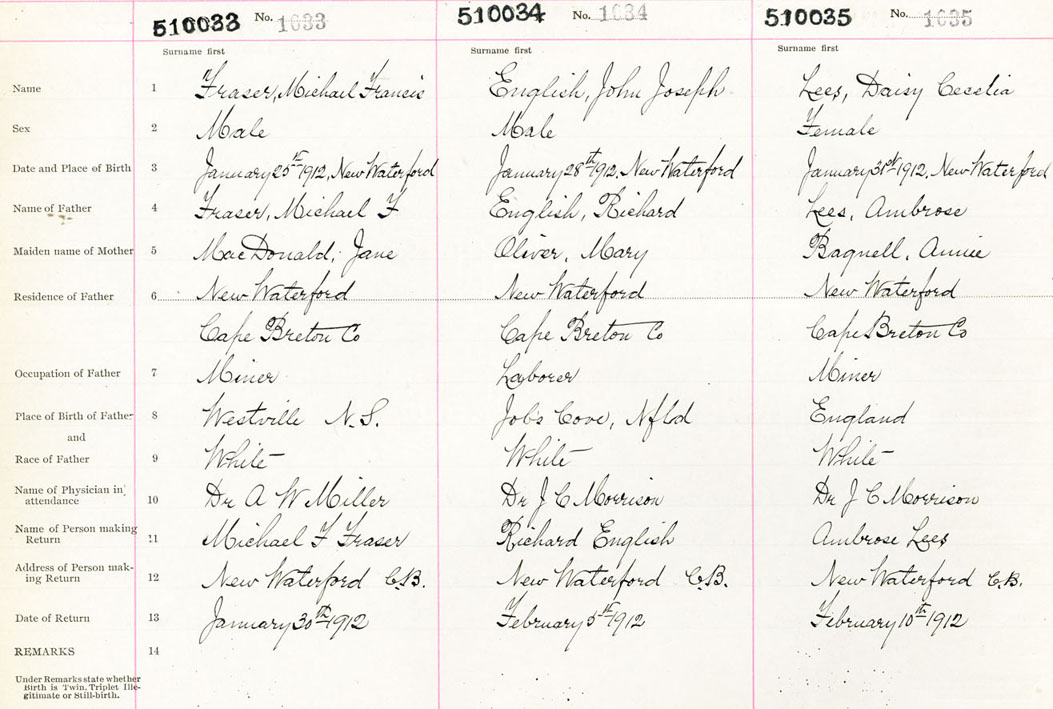 510033 No. 1033 510034 No. 1034 510035 No. 1035
Surname first Surname first Surname first
Name 1 Fraser, Michael Francis English, John Joseph Lees, Daisy Cecelia
Sex 2 Male Male Female
Date and Place of Birth 3 January 25th 1912, New Waterford January 28th 1912, New Waterford January 31st 1912, New Waterford
Name of Father 4 Fraser, Michael F English, Richard Lees, Ambrose
Maiden name of Mother 5 MacDonald, Jane Oliver, Mary Bagnell, Annie
Residence of Father 6 New Waterford New Waterford New Waterford
Cape Breton Co Cape Breton Co Cape Breton Co
Occupation of Father 7 Miner Laborer Miner
Place of Birth of Father 8 Westville N.S. Job's Cove, Nfld England
and
Race of Father 9 White White White
Name of Physician in
attendance 10 Dr A W Miller Dr J C Morrison Dr J C Morrison
Name of Person making
Return 11 Michael F Fraser Richard English Ambrose Lees
Address of Person mak-
ing Return 12 New Waterford C.B. New Waterford C.B. New Waterford C.B.
Date of Return 13 January 30th 1912 February 5th 1912 February 10th 1912
REMARKS 14
Under Remarks state whether
Birth is Twin, Triplet Ille-
gitimate or Still-birth.